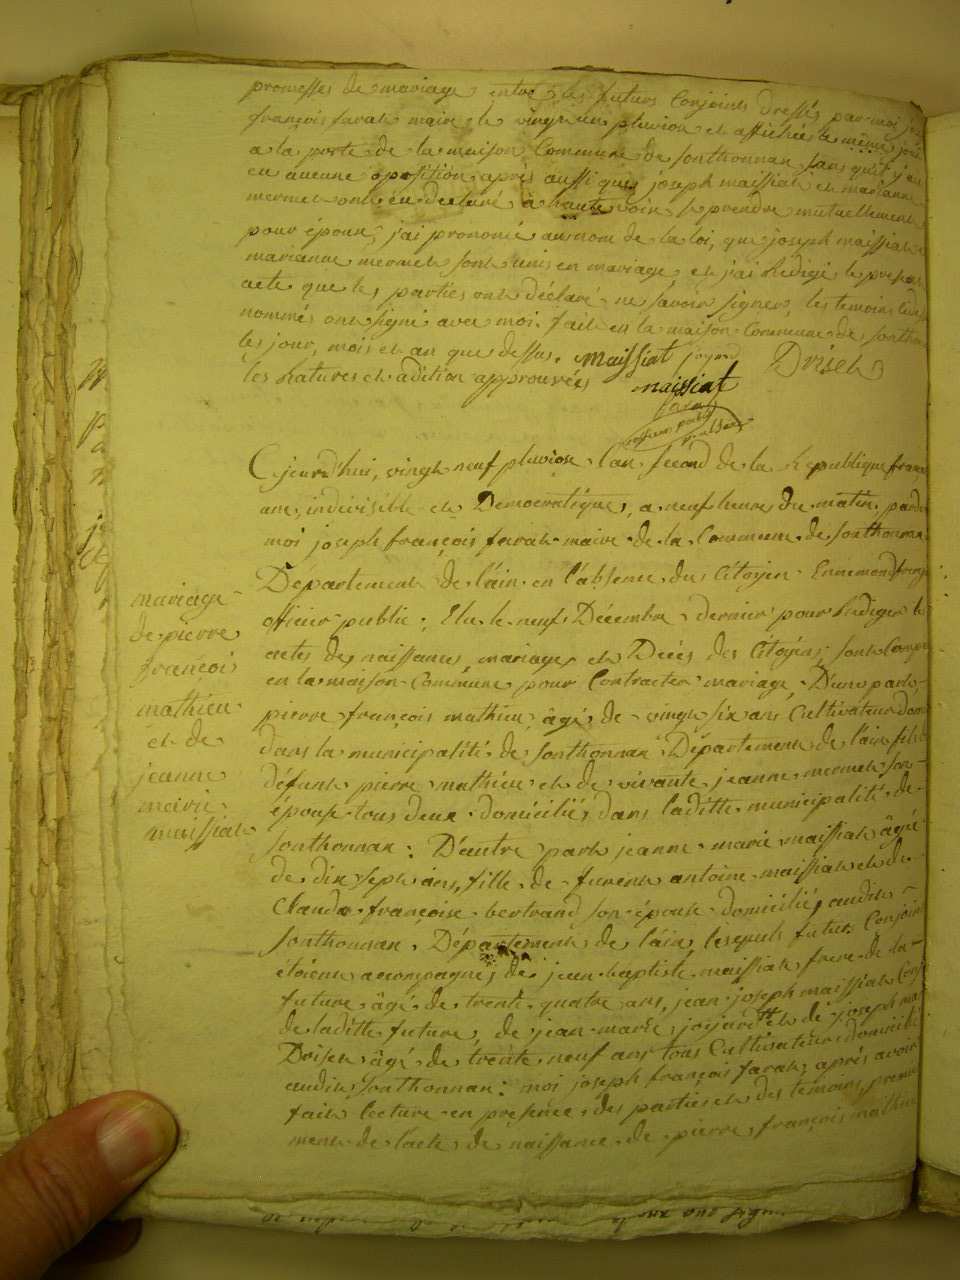 promesses de mariage entre les futurs Conjoints dressés par moi
françois farat maire le vingt un pluviose et affichés le même jour
a la porte de la maison Commune de sonthonnax sans qu'il y en
en aucune oposition, après aussi que joseph maissiat et marianne
mermet ont eu declaré à haute voix se prendre mutuellement
pour époux, j'ai prononcé au nom de la loi, que joseph maissiat
marianne mermet sont unis en mariage et j'ai Rédigé le present
acte que les parties ont déclaré ne savoir signer, les temoins
nommés ont signé avec moi. fait en la maison Commune de sonthonnax
les jour, mois et an que dessus. Maissiat joyard Driset
les Ratures et adition approuvées maissiat
farat
Cejourd'hui, vingt neuf pluviose l'an second de la République françai
une, indivisible et Democratique, a neuf heure du matin, pardt
moi joseph françois farat maire de la Commune de sonthonnax
Département de l'ain en l'absence du Citoyen Ennemond
officier public; Elu le neuf Décembre dernier pour Rediger les
mariage
actes de naissances, mariages et Décès des Citoyens; sont Comparu
de pierre
en la maison Commune pour Contracter mariage, D'une part
françois
pierre françois mathieu âgé de vingt six ans Cultivateur
mathieu
dans la municipalité de sonthonnax Département de l'ain fils
et de
défunt pierre mathieu et de vivante jeanne mermet son
jeanne
épouse tous deux domiciliés dans laditte municipalité de
marie
maissiat
sonthonnax: D'autre part jeanne marie maissiat âgée
de dix sept ans, fille de furent antoine maissiat et de
Claude françoise bertrand son épouse domicilié, audit
sonthonnax. Département de l'ain, lesquels futurs Conjoints
étoient accompagnés de jean baptiste maissiat frere de la
future âgé de trente quatre ans, jean joseph maissiat
de laditte future, de jean marie joyard et de joseph
Driset âgé de trente neuf ans tous Cultivateurs domicilié
audit sonthonnax: moi joseph françois farat, après avoir
fait lecture en présence des parties et des temoins, premie
ment de l'acte de naissance de pierre françois mathieu